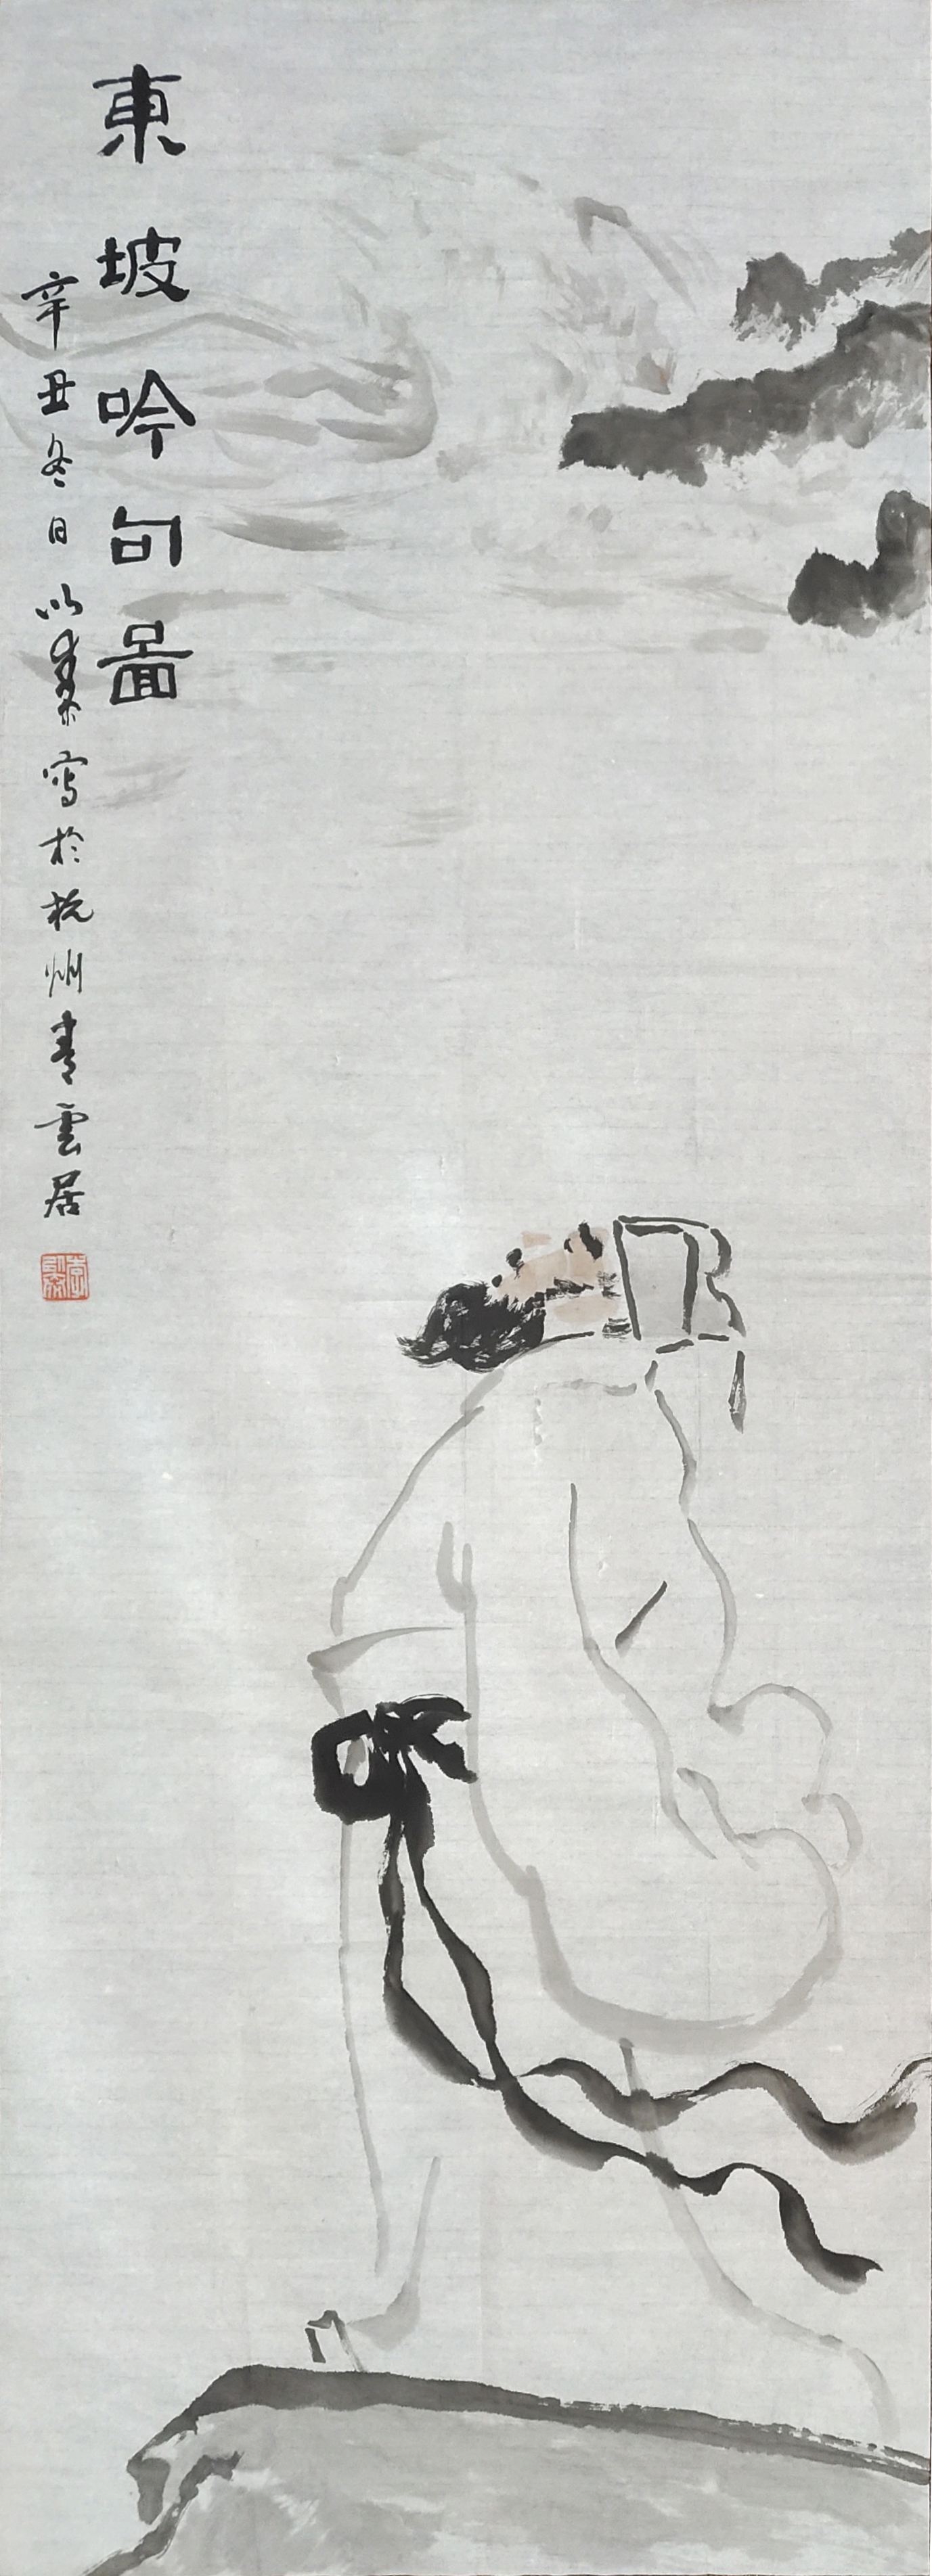 東坡吟句圖
辛丑冬日以桑寫於杭州青雲居